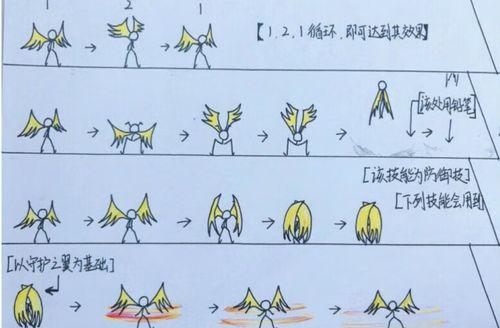 1 2 1
【1.2.1循环.即可达到其效果】
[该处用铅笔]
[该技能为防御技]
[下列技能会用到
[以守护之翼为基础]